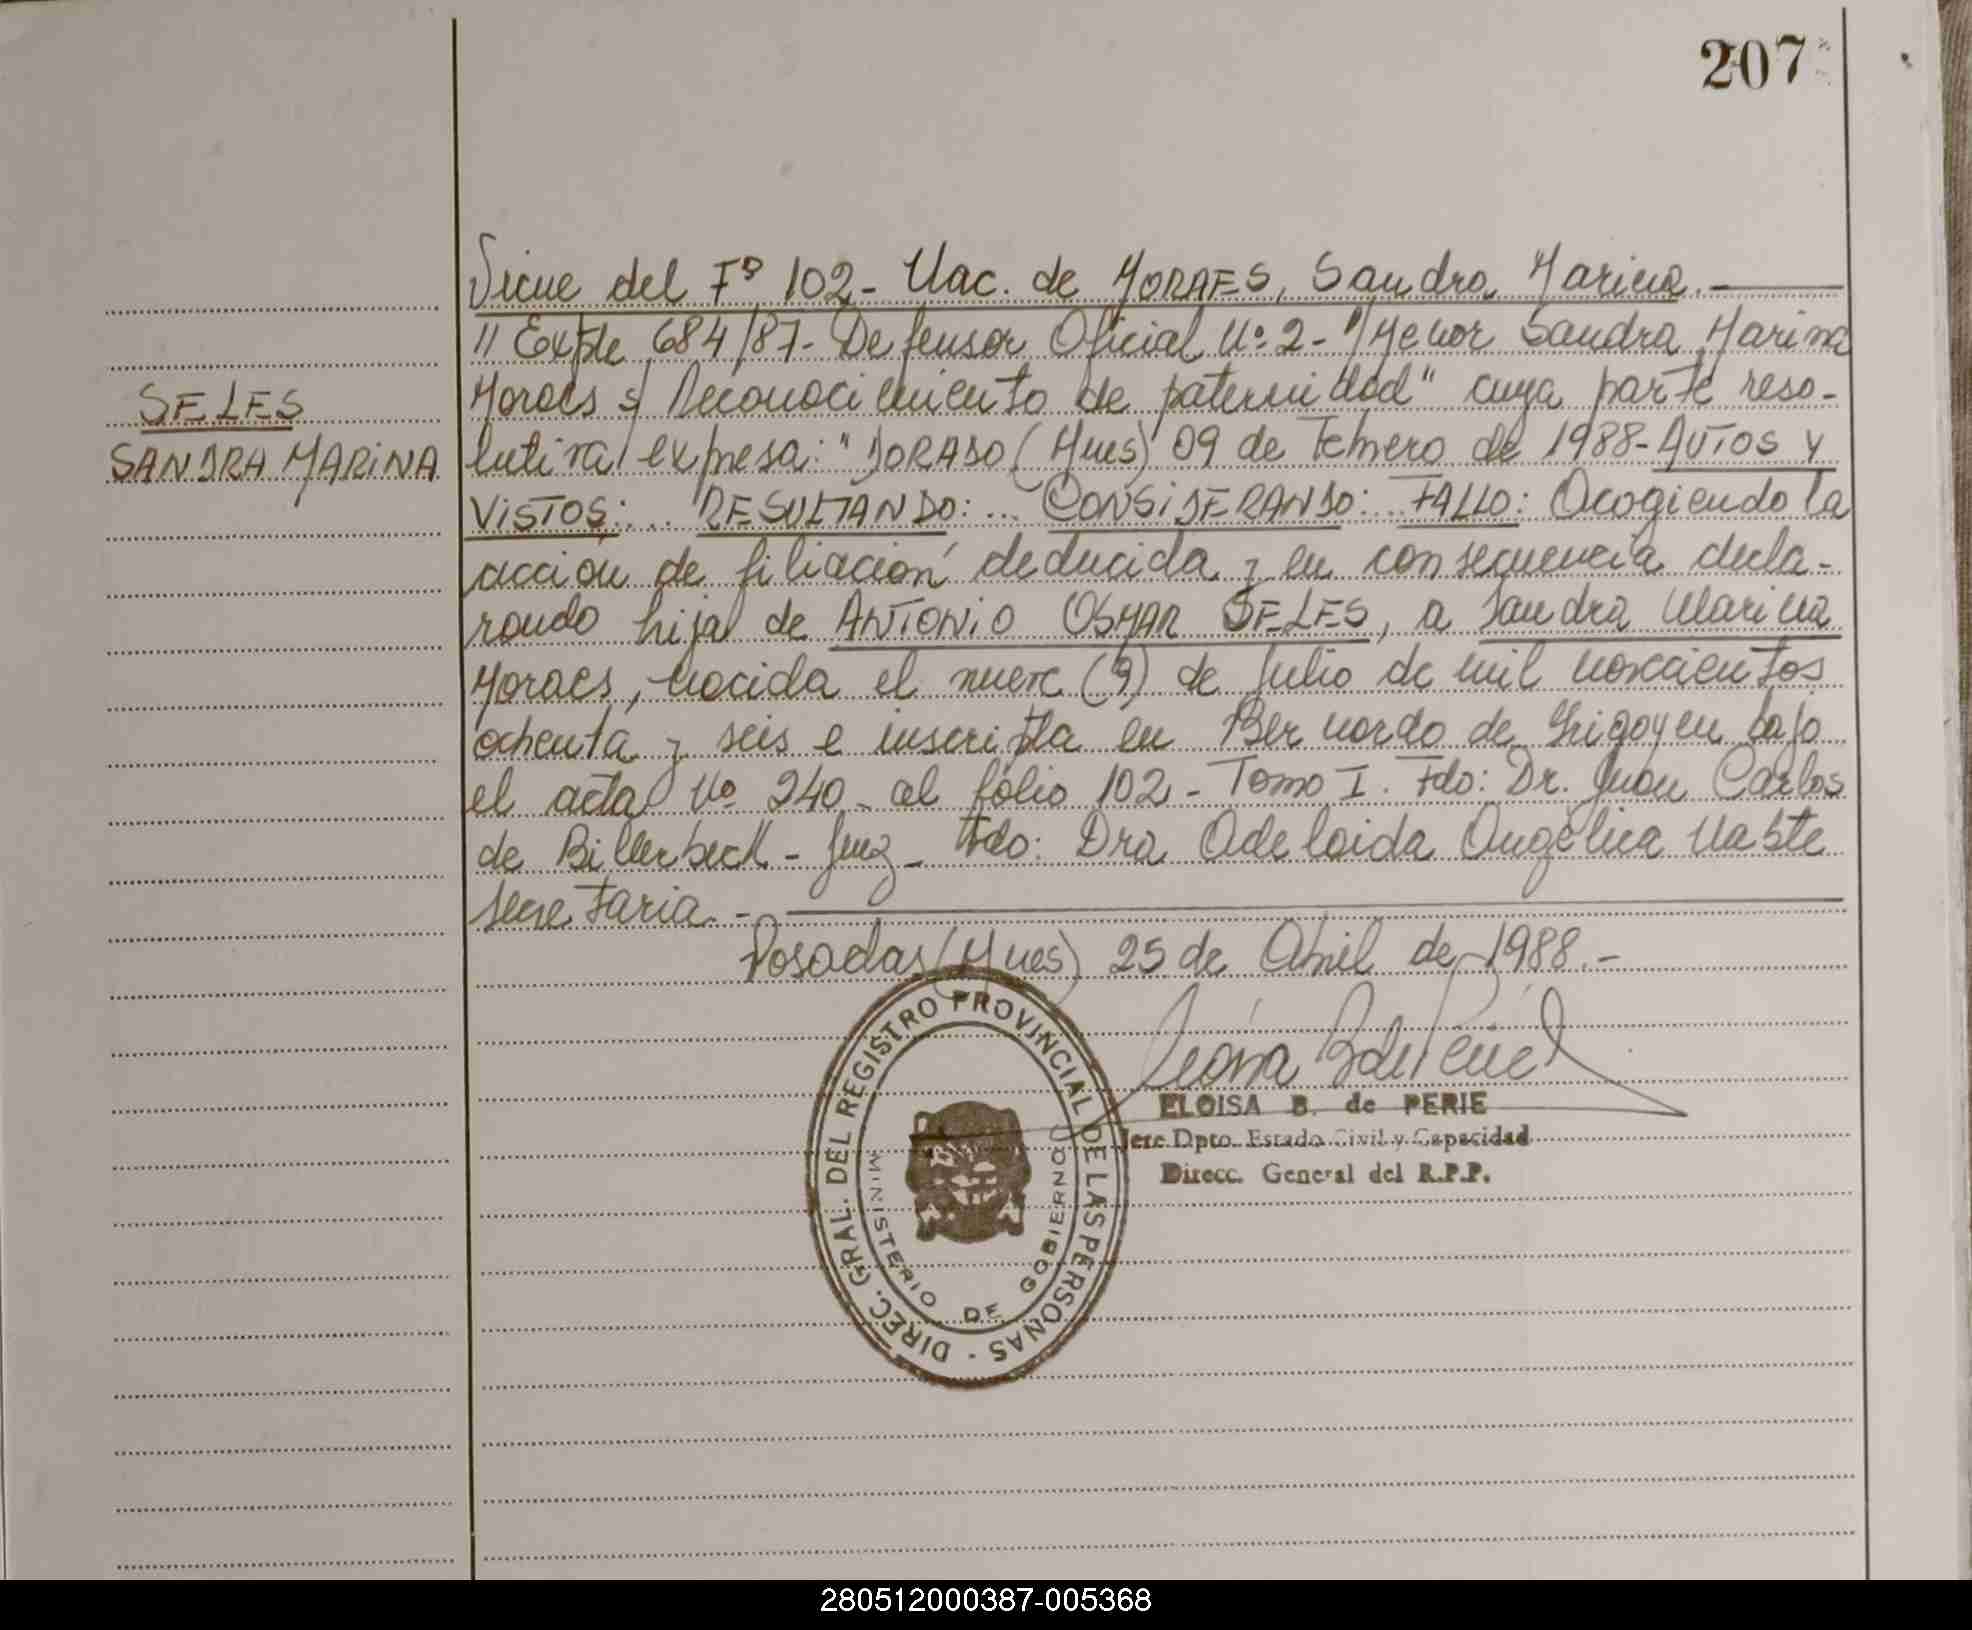 207
Sigue del Fº 102 - Nac. de MORAES, Sandra Marina. -
SELES
SANDRA MARINA
// Expte 684/87 - Defensor Oficial Nº 2 - "Menor Sandra Marina
Moraes s/ Reconocimiento de paternidad" cuya parte reso-
lutiva expresa: "DORADO (Mnes) 09 de Febrero de 1988 - AUTOS Y
VISTOS: ... RESULTANDO: ... CONSIDERANDO: ... FALLO: Acogiendo la
acción de filiación deducida y en consecuencia decla-
rando hija de ANTONIO OSMAR SELES, a Sandra Marina
Moraes, nacida el nueve (9) de Julio de mil novecientos
ochenta y seis e inscripta en Bernardo de Irigoyen bajo
el acta Nº 240 - al folio 102 - Tomo I. Fdo: Dr. Juan Carlos
de Billerbeck - Juez - Fdo: Dra Adelaida Angélica
Secretaria. -
Posadas (Mnes) 25 de Abril de 1988. -
ELOISA B. de PERIE
Jefe Dpto. Estado Civil y Capacidad
Direcc. General del R.P.P.
DIREC. GRAL. DEL REGISTRO PROVINCIAL DE LAS PERSONAS -
MINISTERIO DE GOBIERNO
280512000387-005368